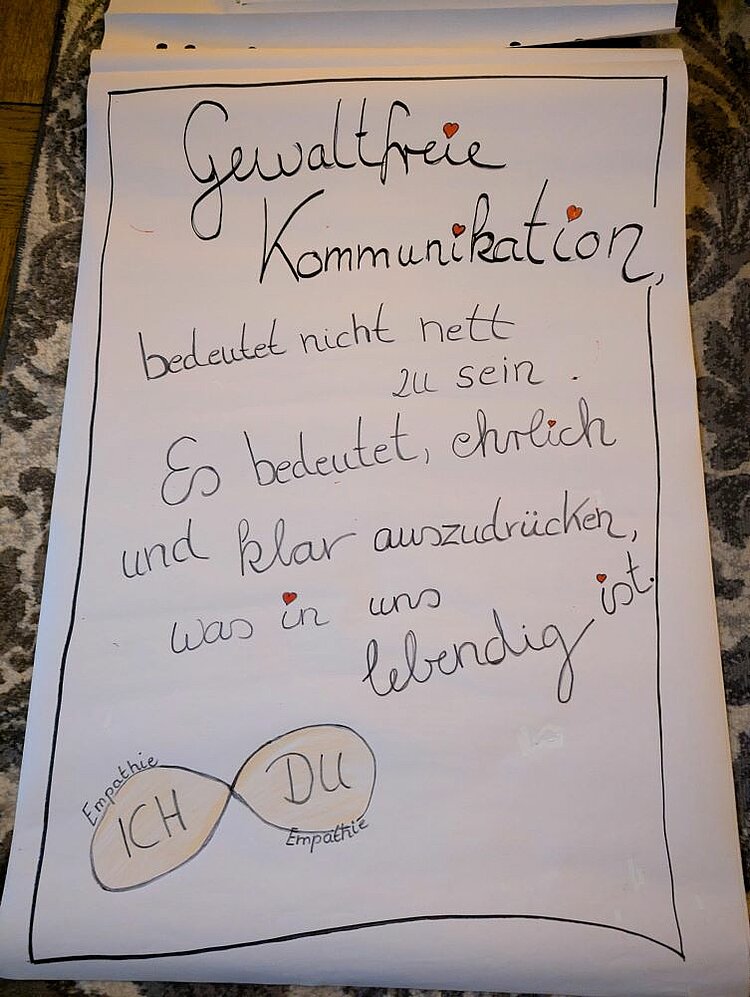 Gewaltfreie
Kommunikation,
bedeutet nicht nett
zu sein.
Es bedeutet, ehrlich
und klar auszudrücken,
was in uns
lebendig ist.
Empathie
ICH
DU
Empathie